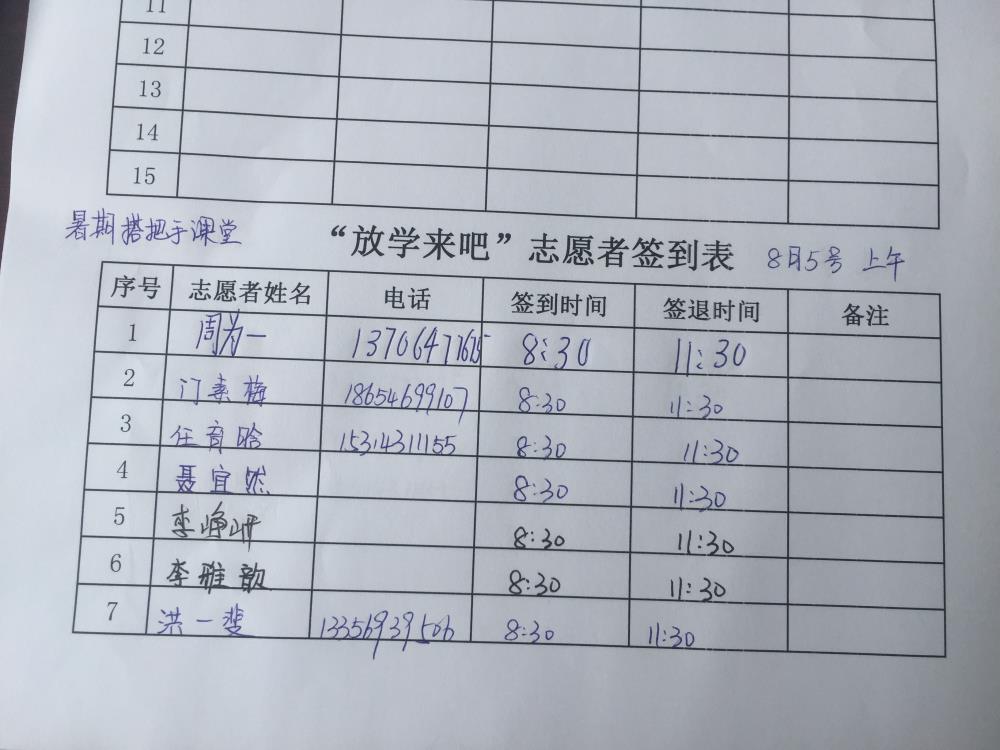 11
12
13
14
15
暑期搭把手课堂 “放学来吧”志愿者签到表 8月5号 上午
序号 志愿者姓名 电话 签到时间 签退时间 备注
1 周为一 8:30 11:30
2 门素梅 18654699107 8:30 11:30
3 任育晗 15314311155 8:30 11:30
4 聂宜然 8:30 11:30
5 李峥岍 8:30 11:30
6 李雅歆 8:30 11:30
7 洪一斐 13356939506 8:30 11:30